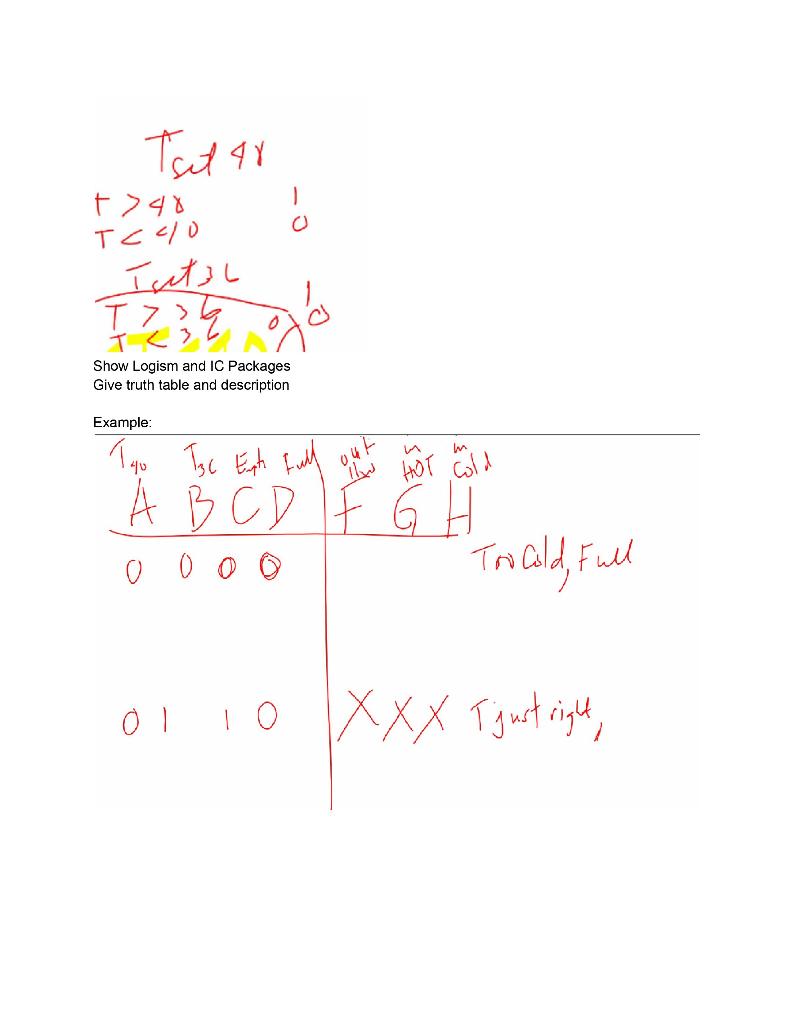 Tset 40
T > 40 1
T < 40 0
Tset 36
T > 36 1
T < 36 0
Show Logism and IC Packages
Give truth table and description
Example:
T40 T36 Full out in in
HOT Cold
A B C D F G H
0 0 0 0 Too Cold, Full
0 1 1 0 X X X T just right,